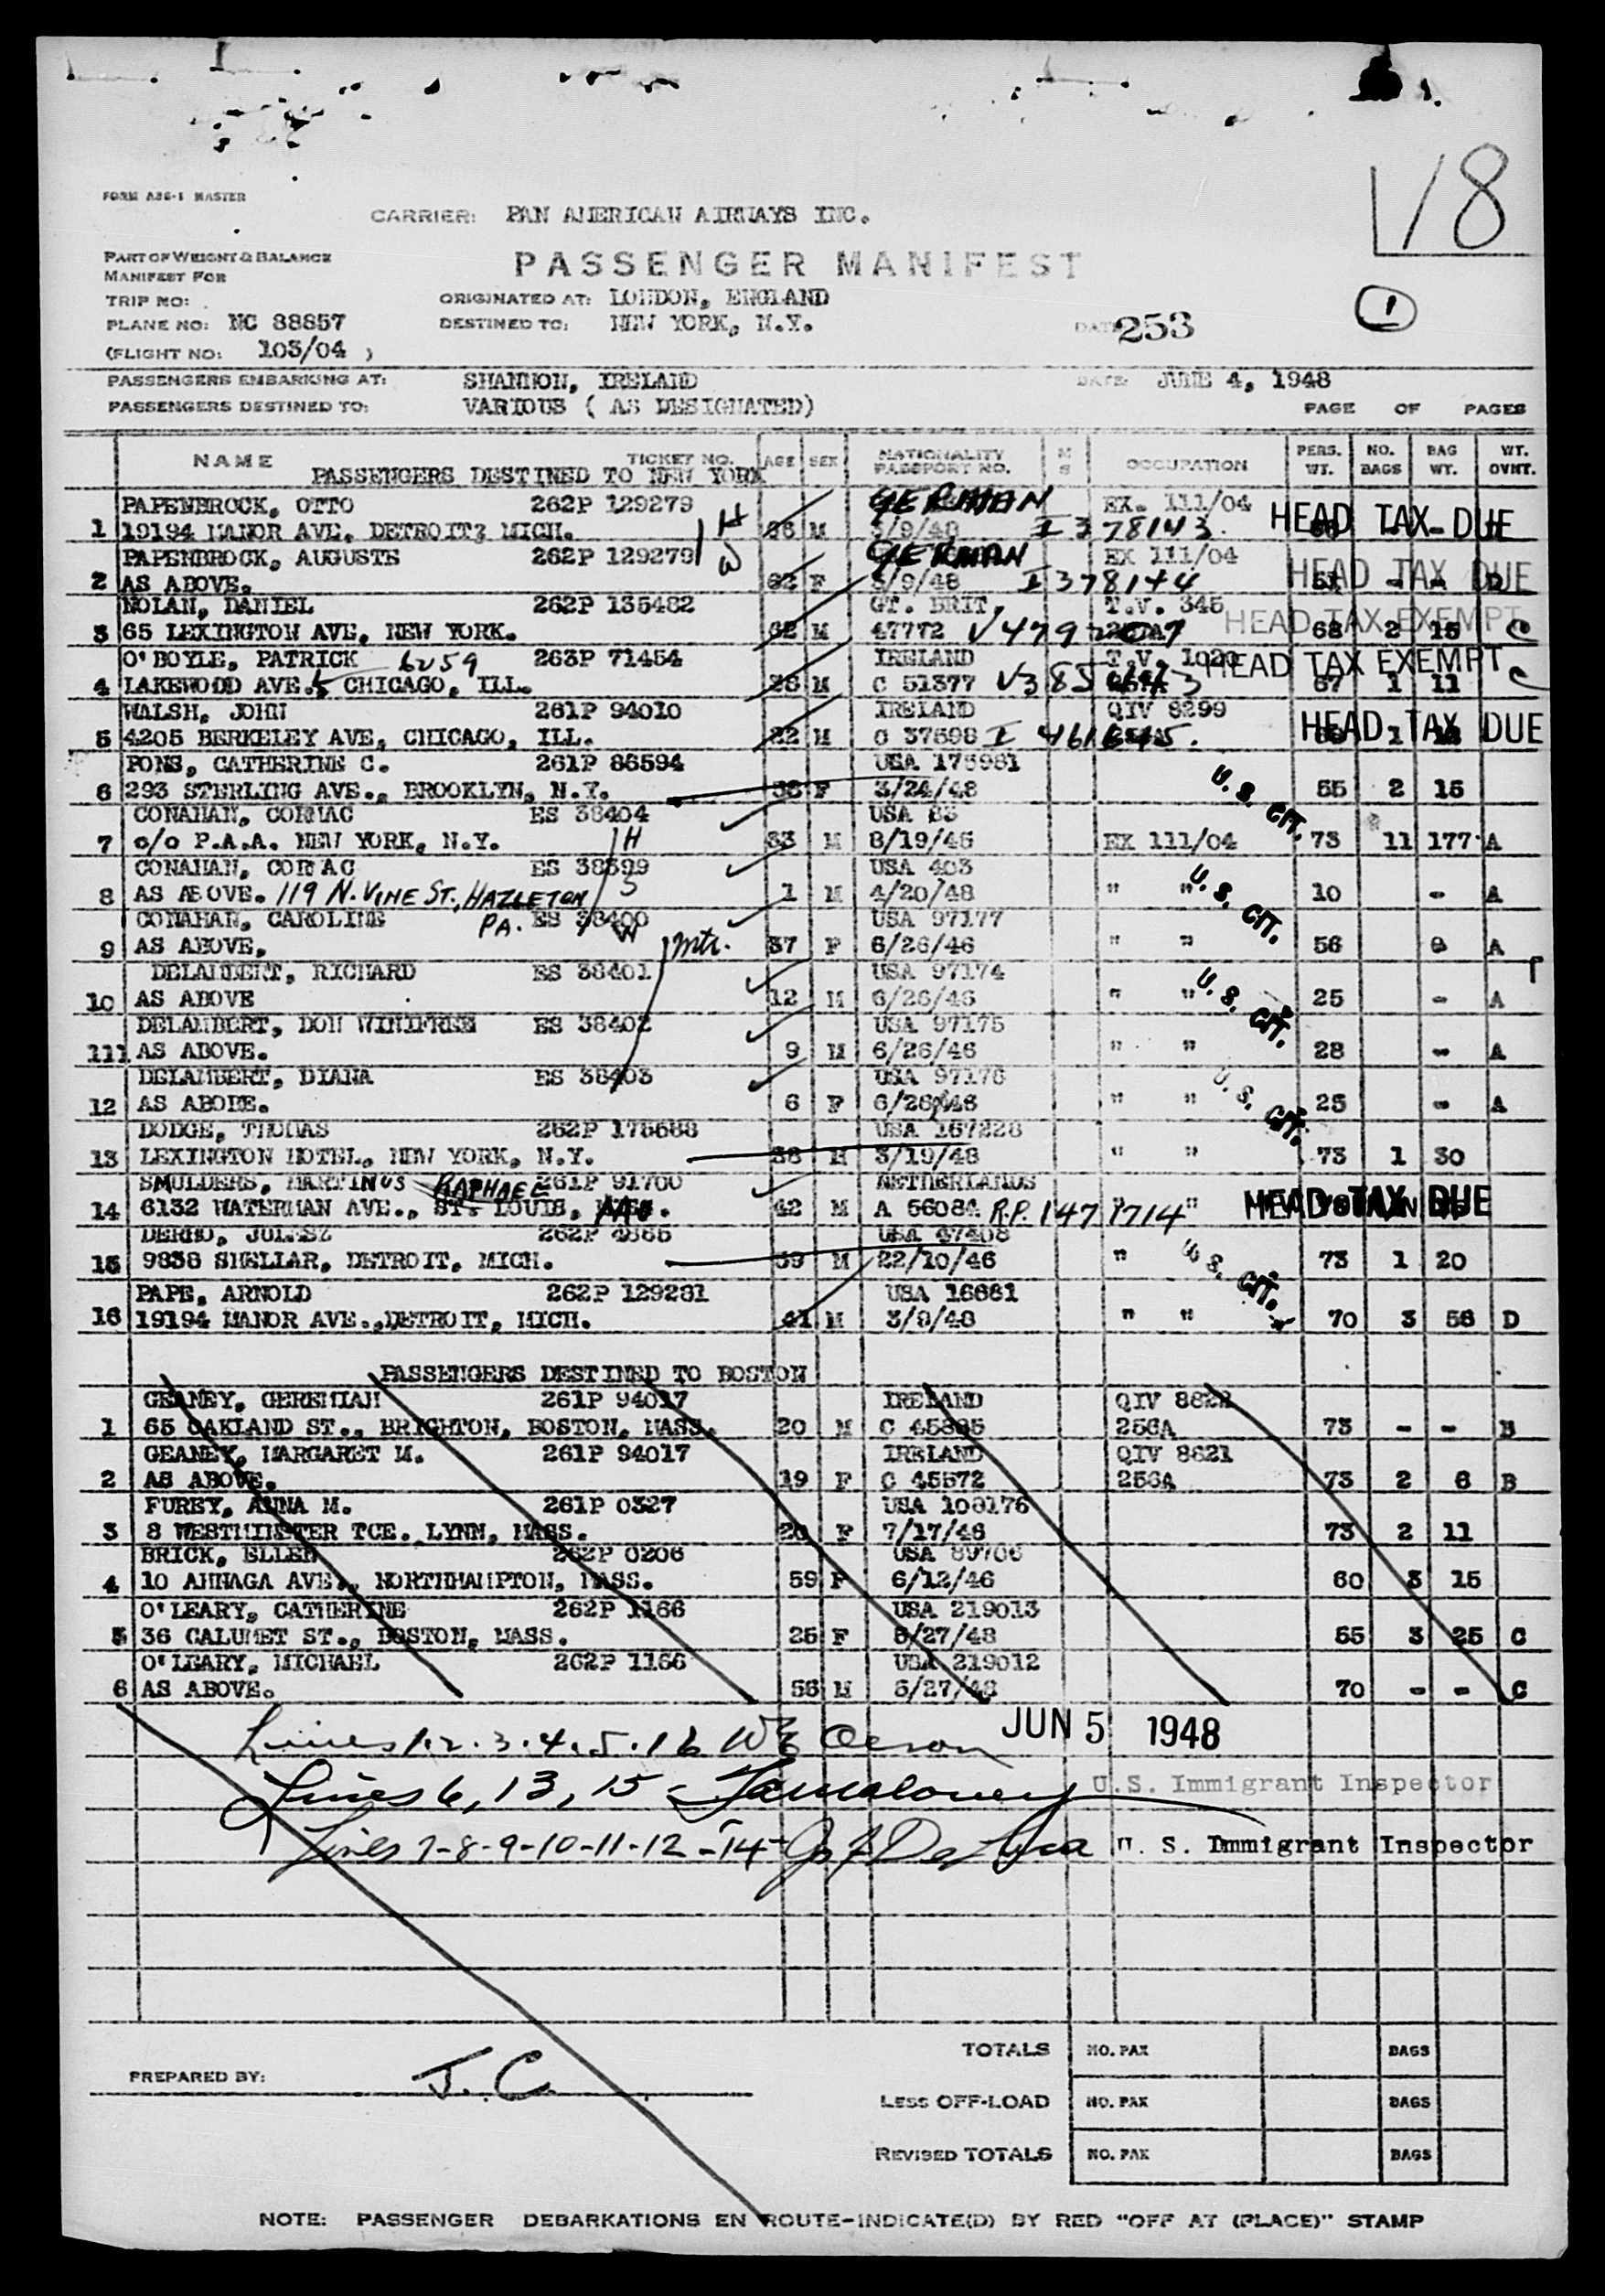 18
FORM A36-1 MASTER
CARRIER: PAN AMERICAN AIRWAYS INC.
PART OF WEIGHT & BALANCE
MANIFEST FOR
PASSENGER MANIFEST
1
TRIP NO:
ORIGINATED AT: LONDON, ENGLAND
PLANE NO: NC 88857
DESTINED TO: NEW YORK, N.Y.
DATE 253
(FLIGHT NO: 103/04 )
PASSENGERS EMBARKING AT: SHANNON, IRELAND DATE: JUNE 4, 1948
PASSENGERS DESTINED TO: VARIOUS ( AS DESIGNATED) PAGE OF PAGES
NAME TICKET NO. AGE SEX NATIONALITY PASSPORT NO. M S OCCUPATION PERS. WT. NO. BAGS BAG WT. WT. OVNT.
PASSENGERS DESTINED TO NEW YORK
PAPENBROCK, OTTO 262P 129279 H GERMAN EX. 111/04 HEAD TAX DUE
1 19194 MANOR AVE, DETROIT, MICH. 66 M 3/9/48 I 378143.
PAPENBROCK, AUGUSTE 262P 129279 W GERMAN EX 111/04 HEAD TAX DUE
2 AS ABOVE. 62 F 3/9/48 I 378144 D
NOLAN, DANIEL 262P 135482 GT. BRIT. T.V. 345 HEAD TAX EXEMPT
3 65 LEXINGTON AVE, NEW YORK. 62 M 47772 68 2 15 C
O'BOYLE, PATRICK 6059 263P 71454 IRELAND T.V. 1020 HEAD TAX EXEMPT
4 LAKEWOOD AVE. CHICAGO, ILL. 26 M C 51377 67 1 11 C
WALSH, JOHN 261P 94010 IRELAND QIV 8299 HEAD TAX DUE
5 4205 BERKELEY AVE, CHICAGO, ILL. 22 M C 37598 I 461645.
PONS, CATHERINE C. 261P 86594 USA 175981 U. S. CIT.
6 293 STERLING AVE., BROOKLYN, N.Y. 38 F 3/24/48 55 2 15
CONAHAN, CORMAC ES 38404 USA 83
7 c/o P.A.A. NEW YORK, N.Y. H 33 M 8/19/46 EX 111/04 73 11 177 A
CONAHAN, CORMAC ES 38399 USA 403 U. S. CIT.
8 AS ABOVE. 119 N. VINE ST., HAZLETON PA. S 1 M 4/20/48 " " 10 - A
CONAHAN, CAROLINE ES 38400 W USA 97177
9 AS ABOVE. mtr. 37 F 6/26/46 " " 56 A
DELAMBERT, RICHARD ES 38401 USA 97174 U. S. CIT.
10 AS ABOVE 12 M 6/26/46 " " 25 - A
DELAMBERT, DON WINIFREE ES 38402 USA 97175
11 AS ABOVE. 9 M 6/26/46 " " 28 - A
DELAMBERT, DIANA ES 38403 USA 97176 U. S. CIT.
12 AS ABOVE. 6 F 6/26/46 " " 25 - A
DODGE, THOMAS 262P 178688 USA 157226
13 LEXINGTON HOTEL, NEW YORK, N.Y. 38 M 3/19/48 " " 73 1 30
SMULDERS, MARTINUS RAPHAEL 261P 91700 NETHERLANDS HEAD TAX DUE
14 6132 WATERMAN AVE., ST. LOUIS, MO. 42 M A 56084 R.P. 147 1714 "
DERHO, JULESZ 262P 4865 USA 47408 U. S. CIT.
15 9838 SHELLAR, DETROIT, MICH. 59 M 22/10/46 " 73 1 20
PAPE, ARNOLD 262P 129281 USA 16681
16 19194 MANOR AVE., DETROIT, MICH. 41 M 3/9/48 " " 70 3 56 D
PASSENGERS DESTINED TO BOSTON
GEANEY, GEREMIAH 261P 94017 IRELAND QIV 8622
1 65 OAKLAND ST., BRIGHTON, BOSTON, MASS. 20 M C 45885 256A 73 - - B
GEANEY, MARGARET M. 261P 94017 IRELAND QIV 8621
2 AS ABOVE. 19 F C 45572 256A 73 2 6 B
FUREY, ANNA M. 261P 0327 USA 100176
3 8 WESTMINSTER TCE. LYNN, MASS. 20 F 7/17/46 73 2 11
BRICK, ELLEN 262P 0206 USA 89706
4 10 AHNAGA AVE., NORTHHAMPTON, MASS. 59 F 6/12/46 60 3 15
O'LEARY, CATHERINE 262P 1166 USA 219013
5 36 CALUMET ST., BOSTON, MASS. 25 F 5/27/48 55 3 25 C
O'LEARY, MICHAEL 262P 1166 USA 219012
6 AS ABOVE. 56 M 5/27/48 70 - - C
Lines 1.2.3.4.5.16 JUN 5 1948
Lines 6, 13, 15 - U.S. Immigrant Inspector
Lines 7-8-9-10-11-12-14- U. S. Immigrant Inspector
TOTALS NO. PAX BAGS
PREPARED BY: J. C.
LESS OFF-LOAD NO. PAX BAGS
REVISED TOTALS NO. PAX BAGS
NOTE: PASSENGER DEBARKATIONS EN ROUTE-INDICATE(D) BY RED "OFF AT (PLACE)" STAMP